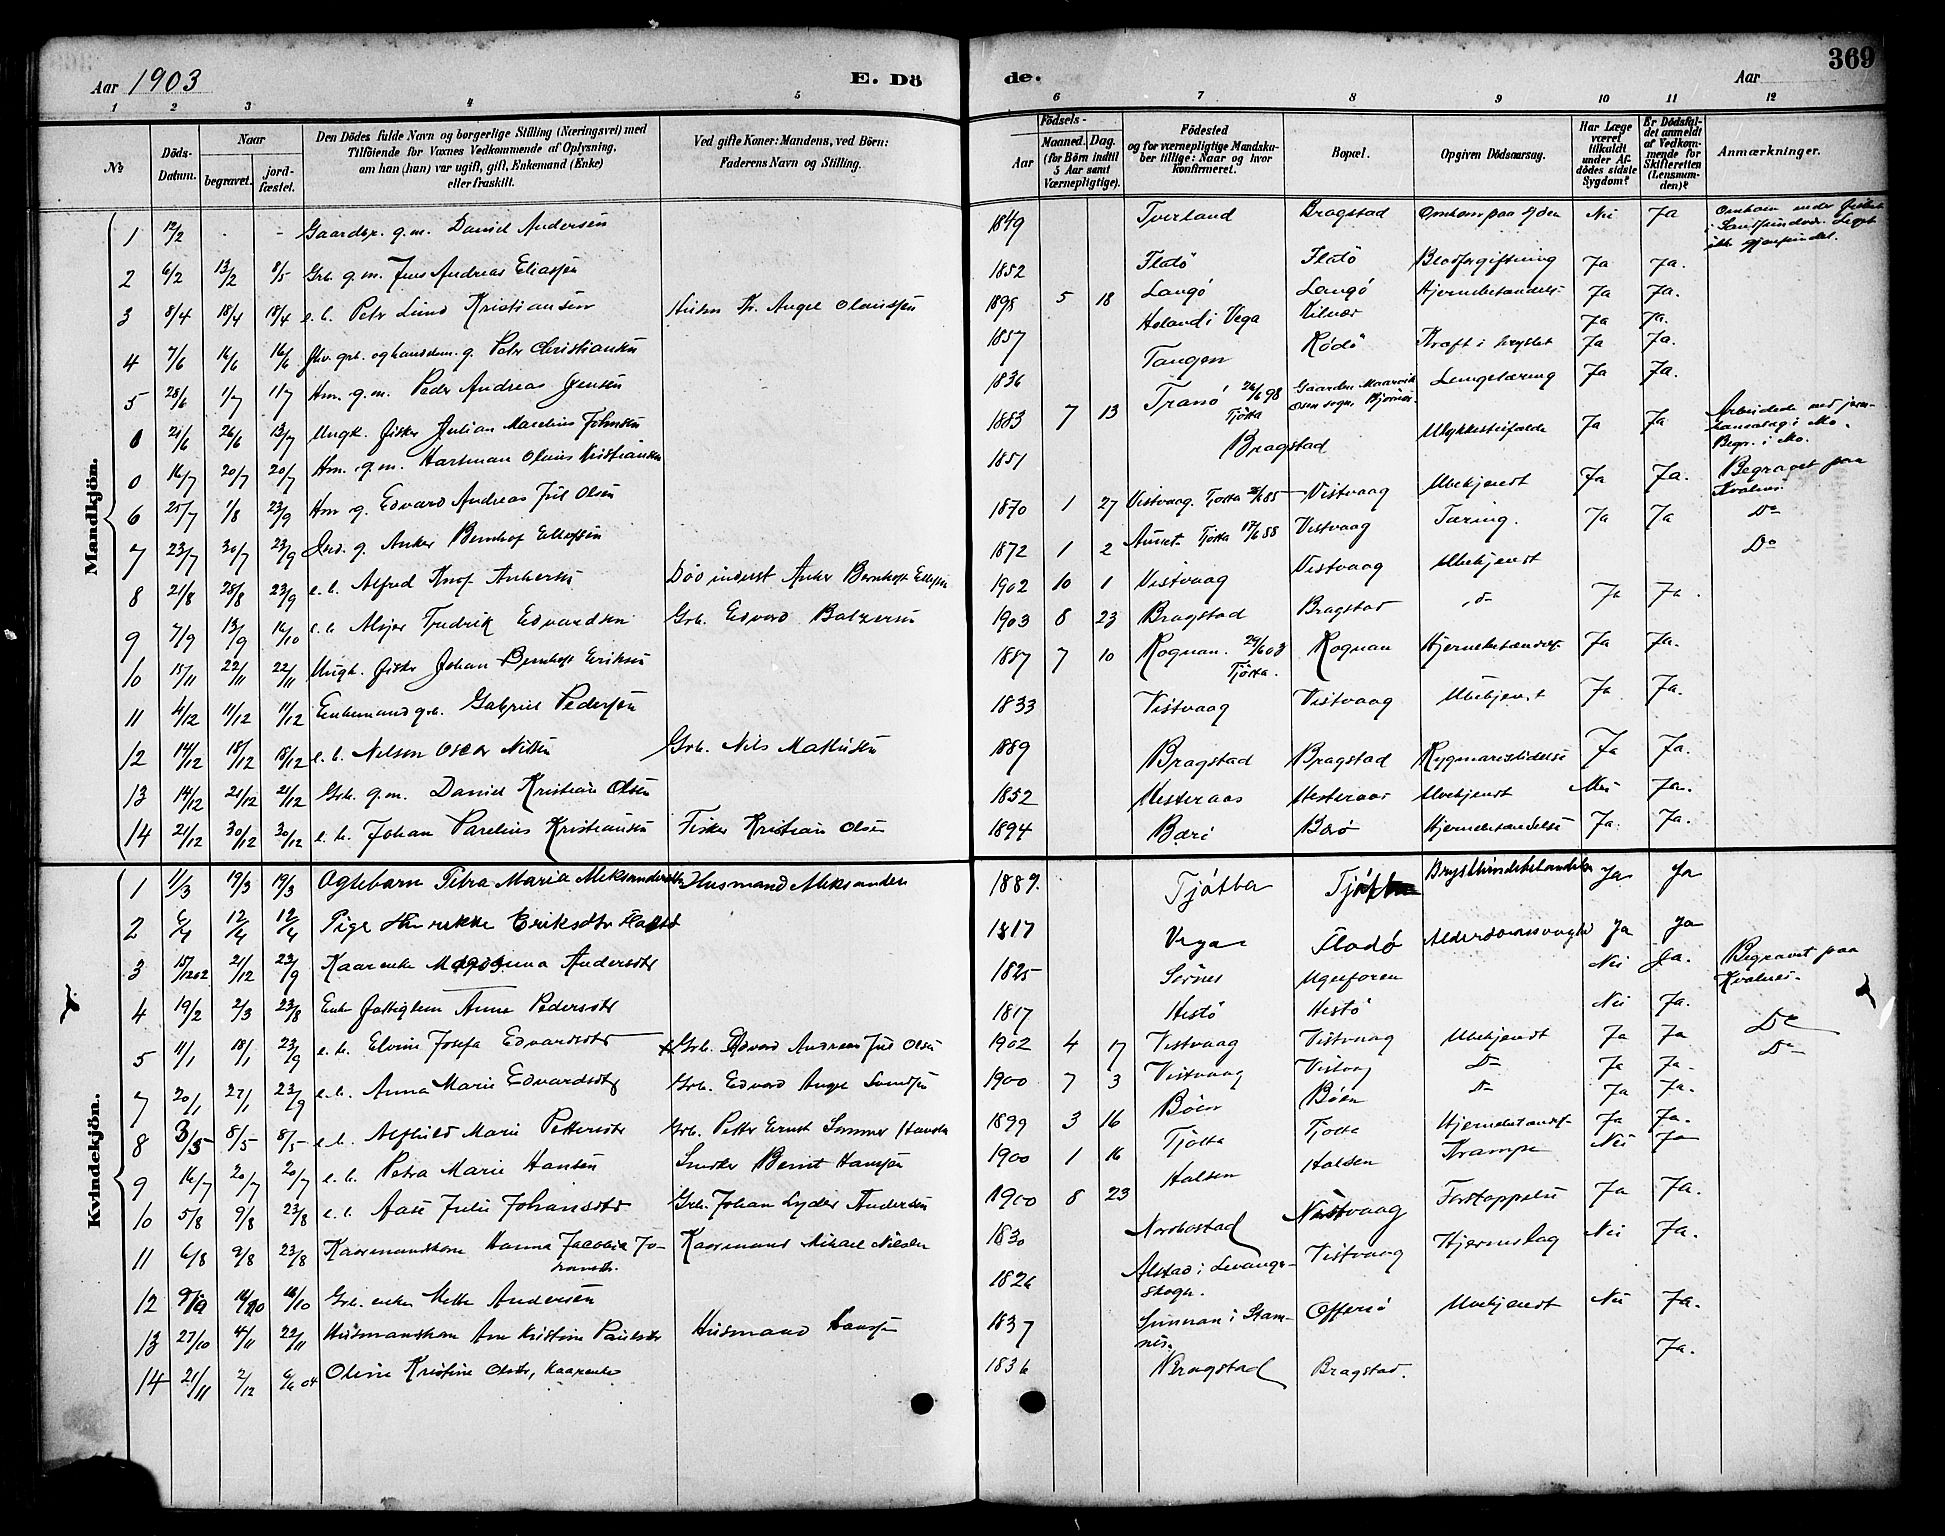 369
Aar 1903 E. Dö de. Aar
1 2 3 4 5 6 7 8 9 10 11 12
No
Döds-Datum.
Naar
begravet.
jord-fæstet.
Den Dödes fulde Navn og borgerlige Stilling (Næringsvei) med
Tilföiende for Voxnes Vedkommende af Oplysning,
om han (hun) var ugift, gift, Enkemand (Enke)
eller fraskilt.
Ved gifte Koner: Mandens, ved Börn:
Faderens Navn og Stilling.
Födsels-
Aar
Maaned. Dag.
(for Börn indtil
5 Aar samt
Værnepligtige).
Födested
og for værnepligtige Mandska-
ber tillige: Naar og hvor
konfirmeret.
Bopæl.
Opgiven Dödsaarsag.
Har Læge
været
tilkaldt
under Af-
dödes sidste
Sygdom?
Er Dödsfal-
det anmeldt
af Vedkom-
mende for
Skifteretten
(Lensman-
den)?
Anmærkninger.
Mandkjön.
1 12/2 - - Gaardbr. g.m. Daniel Andersen 1849 Tverland Bragstad Omkom paa Sjöen Nei Ja Omkom under
2 6/2 13/2 8/5 Grb. g.m. Jens Andreas Eliassen 1852 Fladö Fladö Blodforgiftning Ja Ja.
3 8/4 18/4 18/4 e.b. Petr Lund Kristiansen Angel Olaussen 1898 5 18 Langö Langö Hjernebetændelse Ja Ja.
4 7/6 16/6 16/6 g. Peter Christiansen 1857 Holand i Vega Ja Ja.
5 28/6 1/7 1/7 Hm. g.m. Peder Andreas Jensen 1836 Tangen Rödö Kræft i brystet Ja Ja.
0 21/6 26/6 13/7 Ungk. Fisker Julian Marelius Johnsen 1883 7 13 Tranö 26/6 98 Tjötta Lungetæring Ja Ja.
0 16/7 20/7 20/7 Hm. g.m. Hartman Olaus Kristiansen 1851 Bragstad Ulykkestilfælde Ja Ja Arbeidede ved jern-
i Mo.
Begr. i Mo.
6 25/7 1/8 23/9 Hm. g. Edvard Andreas Jul Olsen 1870 1 27 Vistvaag. Tjötta Vistvaag Ubekjendt Ja Ja. Begravet paa
Kvalnes
7 23/7 30/7 23/9 Ind. g. Anker Bernhof Ellefsen 1872 1 2 Tjötta Vistvaag Tæring. Ja Ja Do
8 21/8 28/8 23/9 e.b. Alfred Knof Ankersen Död inderst Anker Bernhoft Ellefsen 1902 10 1 Vistvaag Vistvaag Ubekjendt Do
9 7/9 13/9 16/10 e.b. Fredrik Edvardsen Grb. Edvard Balzersen 1903 8 23 Bragstad Bragstad do Ja Ja.
10 15/11 22/11 22/11 Ungk. fisker Johan Bernhoft Eriksen 1887 7 10 Rognan. Tjötta. Rognan Hjernebetændelse Ja Ja.
11 4/12 11/12 11/12 Enkemand grb. Gabriel Pedersen 1833 Vistvaag Vistvaag Ubekjendt Ja Ja.
12 14/12 18/12 18/12 e.b. Nelson Oscar Nilsen Grb. Nils Mathisen 1889 Bragstad Bragstad Rygmarvslidelse Ja Ja.
13 14/12 21/12 21/12 Grb. g.m. Daniel Kristian Olsen 1852 Hesteraas Hesteraas Ubekjendt Nei Ja.
14 21/12 30/12 30/12 e.b. Johan Parelius Kristiansen Fisker Kristian Olsen 1894 Bærö Bærö Hjernebetændelse Ja. Ja.
Kvindekjön.
1 11/3 19/3 19/3 Ogtebarn Petra Maria Aleksandersdtr Husmand Aleksander 1889. Tjötta Tjötta Brysthindebetændelse Ja Ja
2 6/4 12/4 12/4 Pige Henrikke Eriksdtr 1817 Vega Fladö Alderdomssvaghed Ja Ja
3 15/12 02 21/12 23/9 Kaarenke Andersdtr 1825 Sörnes Nei Ja. Begravet paa
Kvalnes.
4 19/2 2/3 23/8 Enke fattiglem Anne Pedersdtr 1817 Hestö Hestö Nei Ja.
5 11/1 18/1 23/9 e.b. Elvine Josefa Edvardsdtr Grb. Edvard Andreas Jul Olsen 1902 4 17 Vistvaag Vistvaag Ubekjendt Ja Ja Do
7 20/1 27/1 23/9 e.b. Anna Marie Edvardsdtr Grb. Edvard Angel Svendsen 1900 7 3 Vistvaag Vistvaag Do Ja Ja. Do
8 3/5 8/5 8/5 e.b. Alfhild Marie Pettersdtr Grb. Petter Ernst Sommer 1899 3 16 Böen Böen Do Ja Ja.
9 16/7 20/7 20/7 e.b. Petra Marie Hansen Smeder Bernt Hansen 1900 1 16 Tjötta Tjotta Hjernebetændelse Ja Ja.
10 5/8 9/8 23/8 e.b. Aase Julie Johansdtr Grb. Johan Lyder Andersen 1900 8 23 Halsen Halsen Krampe Nei Ja
11 6/8 9/8 23/8 Kaarmandskone Hanna Jacobia Jo-
hansdtr. Kaarmand Mikael Nilsen 1830 Nordbostad Vistvaag Forstoppelse Ja Ja.
12 Grb. enke Mette Andersen 1826 Alstad i Levanger
Skogn. Vistvaag Hjerneslag Nei Ja.
13 27/10 4/11 22/11 Husmandskone Ane Kristine Paulsdtr Husmand Hansen 1837 Offersö Ubekjendt Nei Ja.
14 21/11 2/12 6/6 04 Oline Kristine Olsdtr, Kaarenke 1836 Bragstad Bragstad. Ja.